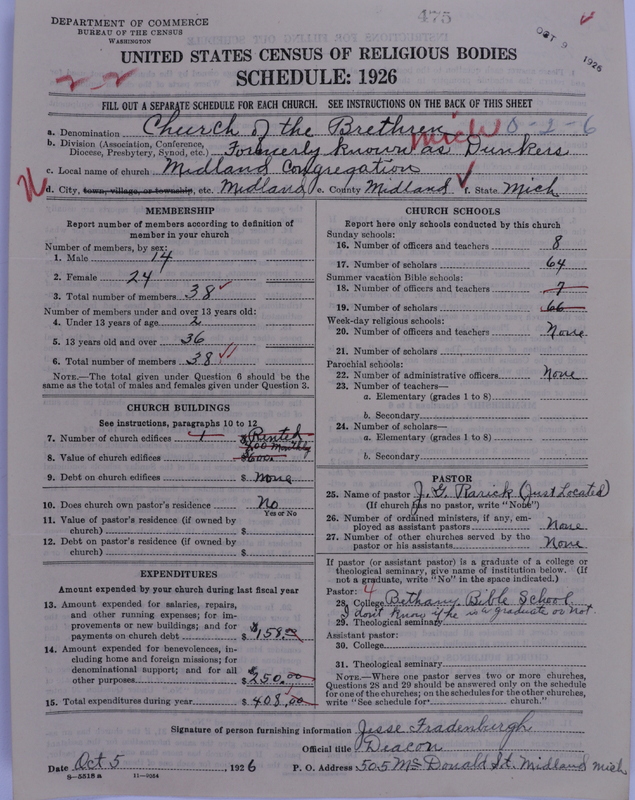 DEPARTMENT OF COMMERCE
BUREAU OF THE CENSUS
WASHINGTON
475
OCT 9 1926
UNITED STATES CENSUS OF RELIGIOUS BODIES
SCHEDULE: 1926
FILL OUT A SEPARATE SCHEDULE FOR EACH CHURCH. SEE INSTRUCTIONS ON THE BACK OF THIS SHEET
a. Denomination Church of the Brethren
Mich 0-2-6
b. Division (Association, Conference,
Diocese, Presbytery, Synod, etc.) Formerly known as Dunkers
c. Local name of church Midland Congregation
d. City, town, village, or township, etc. Midland e. County Midland f. State Mich
MEMBERSHIP
Report number of members according to definition of
member in your church
Number of members, by sex:
1. Male 14
2. Female 24
3. Total number of members 38
Number of members under and over 13 years old:
4. Under 13 years of age 2
5. 13 years old and over 36
6. Total number of members 38
NOTE.—The total given under Question 6 should be the
same as the total of males and females given under Question 3.
CHURCH BUILDINGS
See instructions, paragraphs 10 to 12
7. Number of church edifices 1 Rented
8. Value of church edifices $600 Monthly
9. Debt on church edifices $ none
10. Does church own pastor's residence No
Yes or No
11. Value of pastor's residence (if owned by
church) $
12. Debt on pastor's residence (if owned by
church) $
EXPENDITURES
Amount expended by your church during last fiscal year
13. Amount expended for salaries, repairs,
and other running expenses; for im-
provements or new buildings; and for
payments on church debt $158.00
14. Amount expended for benevolences, in-
cluding home and foreign missions; for
denominational support; and for all
other purposes $250.00
15. Total expenditures during year $408.00
CHURCH SCHOOLS
Report here only schools conducted by this church
Sunday schools:
16. Number of officers and teachers 8
17. Number of scholars 64
Summer vacation Bible schools:
18. Number of officers and teachers 7
19. Number of scholars 66
Week-day religious schools:
20. Number of officers and teachers None
21. Number of scholars
Parochial schools:
22. Number of administrative officers None
23. Number of teachers—
a. Elementary (grades 1 to 8)
b. Secondary
24. Number of scholars—
a. Elementary (grades 1 to 8)
b. Secondary
PASTOR
25. Name of pastor J. G. Rarick (Just Located)
(If church has no pastor, write "None")
26. Number of ordained ministers, if any, em-
ployed as assistant pastors None
27. Number of other churches served by the
pastor or his assistants None
If pastor (or assistant pastor) is a graduate of a college or
theological seminary, give name of institution below. (If
not a graduate, write "No" in the space indicated.)
Pastor: 4
28. College Bethany Bible School
I don't know if he is a graduate or not.
29. Theological seminary
Assistant pastor:
30. College
31. Theological seminary
NOTE.—Where one pastor serves two or more churches,
Questions 28 and 29 should be answered only on the schedule
for one of the churches; on the schedules for the other churches,
write "See schedule for church."
Signature of person furnishing information Jesse Fradenburgh
Official title Deacon
Date Oct 5 1926 P. O. Address 505 McDonald St. Midland Mich
8—5518 a 11—9264